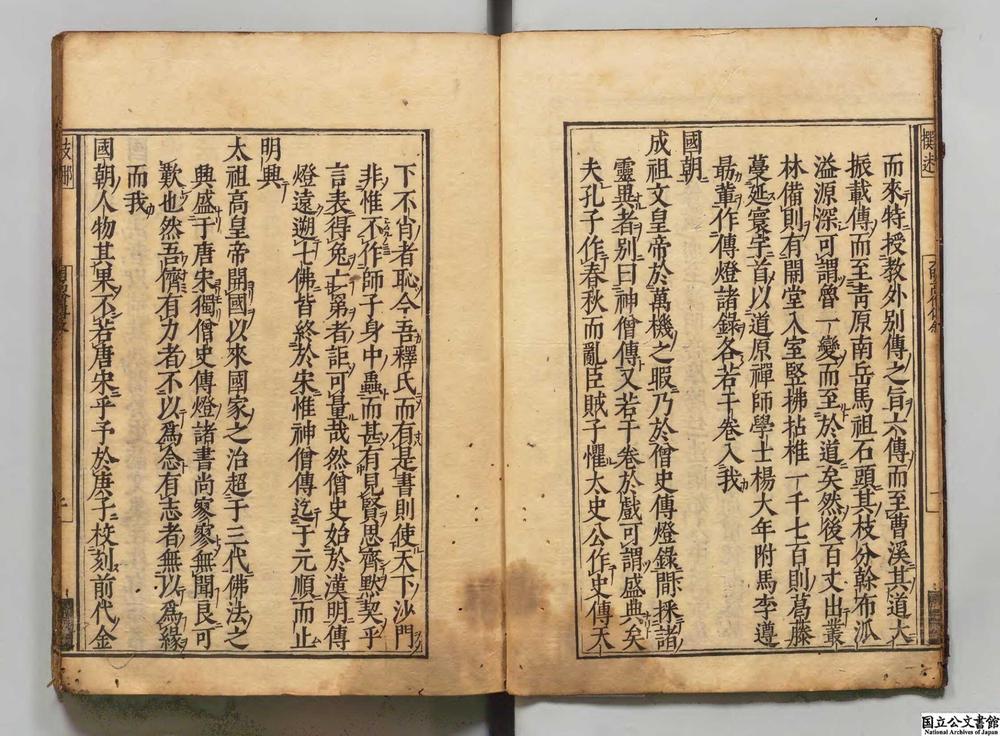 而來特授教外別傳之旨六傳而至曹溪其道大
振載傳而至青原南岳馬祖石頭其枝分幹布派
溢源深可謂魯一變而至於道矣然後百丈出叢
林備則有開堂入室竪拂拈椎一千七百則葛藤
蔓延寰宇首以道原禪師學士楊大年附馬李遵
勗輩作傳燈諸錄各若干卷入我
國朝
成祖文皇帝於萬機之暇乃於僧史傳燈錄間採諸
靈異者別曰神僧傳又若干卷於戲可謂盛典矣
夫孔子作春秋而亂臣賊子懼太史公作史傳天
下不肖者恥今吾釋氏而有是書則使天下沙門
非惟不作師子身中蟲而甚有見賢思齊默契乎
言表得兔亡罤者詎可量哉然僧史始於漢明傳
燈遠遡七佛皆終於宋惟神僧傳迄于元順而止
明興
太祖高皇帝開國以來國家之治超于三代佛法之
興盛于唐宋獨僧史傳燈諸書尚寥寥無聞良可
歎也然吾儕有力者不以為念有志者無以為緣
而我
國朝人物其果不若唐宋乎予於庚子校刻前代金
撰述
支那
国立公文書館
National Archives of Japan